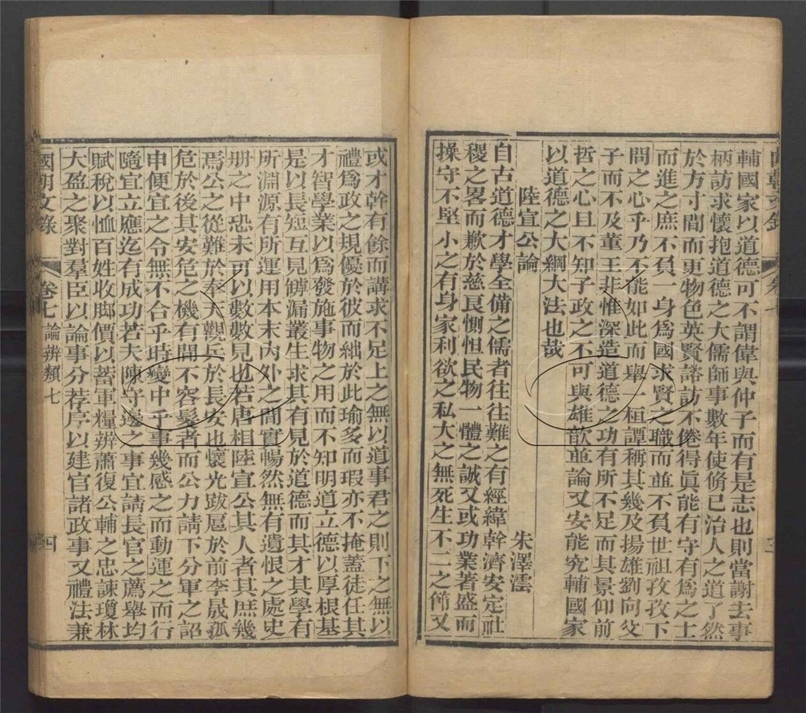 輔國家以道德可不謂偉與仲子而有是志也則當謝去事
柄訪求懷抱道德之大儒師事數年使脩己治人之道了然
於方寸間而更物色英賢諮訪不倦得眞能有守有爲之士
而進之庶不負一身爲國求賢之職而並不負世祖孜孜下
問之心乎乃不能如此而舉一桓譚稱其幾及揚雄劉向父
子而不及董王非惟深造道德之功有所不足而其景仰前
哲之心且不知子政之不可與雄歆並論又安能究輔國家
以道德之大綱大法也哉
陸宣公論
朱澤澐
自古道德才學全備之儒者往往難之有經緯幹濟安定社
稷之畧而歉於慈良惻怛民物一體之誠又或功業著盛而
操守不堅小之有身家利欲之私大之無死生不二之節又
或才幹有餘而講求不足上之無以道事君之則下之無以
禮爲政之規優於彼而絀於此瑜多而瑕亦不掩蓋徒任其
才智學業以爲發施事物之用而不知明道立德以厚根基
是以長短互見罅漏叢生求其有見於道德而其才其學有
所淵源有所運用本末內外之間實暢然無有遺恨之處史
冊之中恐未可以數數見也若唐相陸宣公其人者其庶幾
焉公之從難於奉天觀兵於長安也懷光跋扈於前李晟孤
危於後其安危之機有間不容髮者而公力請下分軍之詔
申便宜之令無不合乎時變中乎事幾感之而動運之而行
隨宜立應迄有成功若夫陳守邊之事宜請長官之薦舉均
賦稅以恤百姓收脚價以蓄軍糧辨蕭復公輔之忠諫瓊林
大盈之聚對羣臣以論事分荐序以建官諸政事又禮法兼
國朝文錄
卷七論辨類七
四